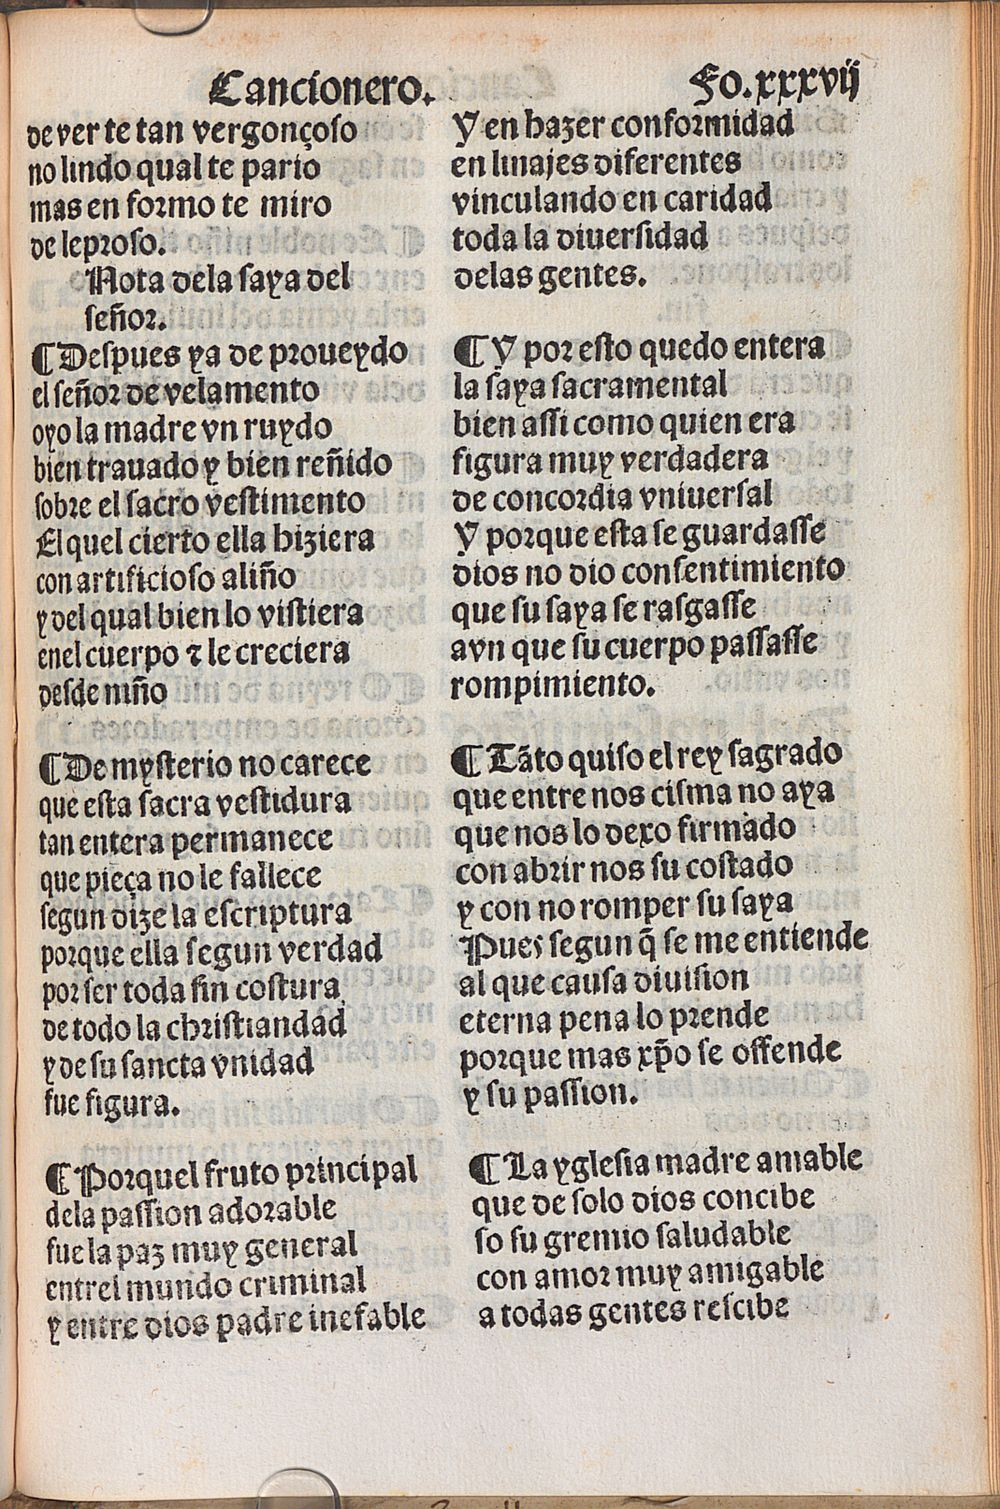 Cancionero.
Fo.xxxvij
de ver te tan vergonçoso
no lindo qual te pario
mas en formo te miro
de leproso.
Nota dela saya del
señor.
¶ Despues ya de proueydo
el señor de velamento
oyo la madre vn ruydo
bien trauado y bien reñido
sobre el sacro vestimento
El quel cierto ella hiziera
con artificioso aliño
y del qual bien lo vistiera
enel cuerpo ⁊ le creciera
desde niño
¶ De mysterio no carece
que esta sacra vestidura
tan entera permanece
que pieça no le fallece
segun dize la escriptura
porque ella segun verdad
por ser toda sin costura
de todo la christiandad
y de su sancta vnidad
fue figura.
¶ Porquel fruto principal
dela passion adorable
fue la paz muy general
entrel mundo criminal
y entre dios padre inefable
Y en hazer conformidad
en linajes diferentes
vinculando en caridad
toda la diuersidad
delas gentes.
¶ Y por esto quedo entera
la saya sacramental
bien assi como quien era
figura muy verdadera
de concordia vniuersal
Y porque esta se guardasse
dios no dio consentimiento
que su saya se rasgasse
avn que su cuerpo passasse
rompimiento.
¶ Tãto quiso el rey sagrado
que entre nos cisma no aya
que nos lo dexo firmado
con abrir nos su costado
y con no romper su saya
Pues segun q̃ se me entiende
al que causa diuision
eterna pena lo prende
porque mas xp̃o se offende
y su passion.
¶ La yglesia madre amable
que de solo dios concibe
so su gremio saludable
con amor muy amigable
a todas gentes rescibe